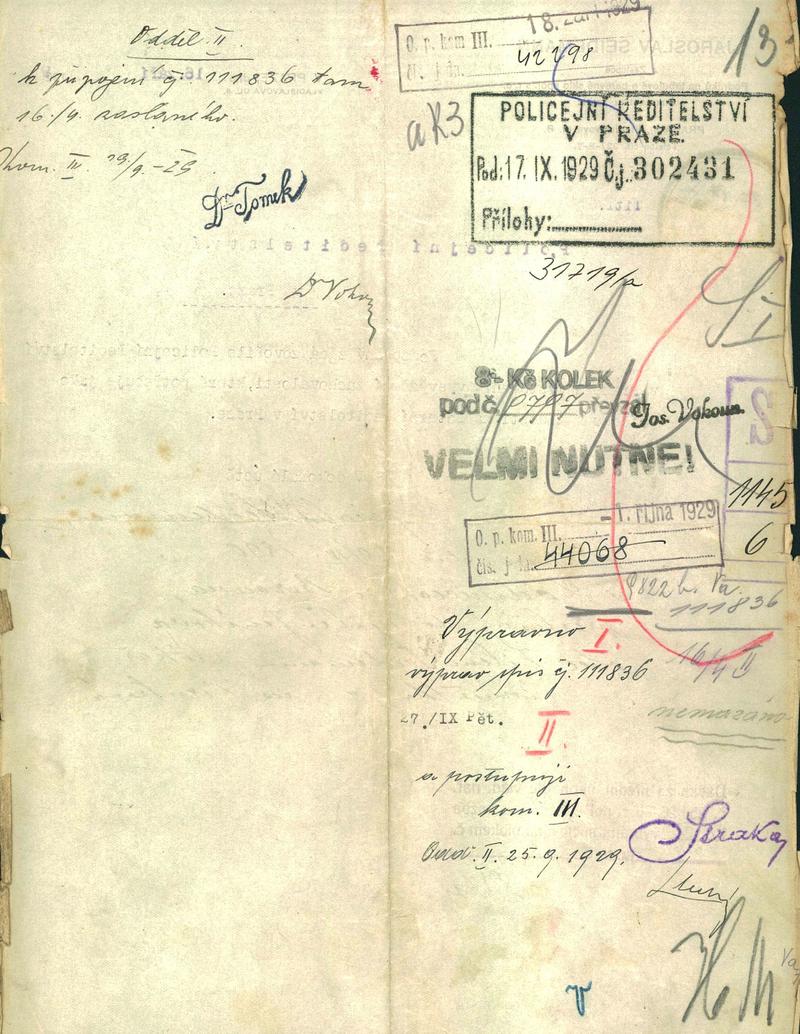 Odděl. II.
k připojení čj. 111836 tam
16./9. zaslaného.
kom. III. 19/9.-29
Dr Tomek
18. září 1929
O. p. kom III.
42298
13
a K3
POLICEJNÍ ŘEDITELSTVÍ
V PRAZE.
Pod: 17. IX. 1929 Č.j. 302431
Přílohy:
31719/
8 - Kč KOLEK
pod č. 0707 převzal
Jos. Vokoun.
VELMI NUTNÉ!
S
1145
6
- 1. října 1929
O. p. kom. III.
čís. j
44068
111836
Výpravno I.
výprav spis čj. 111836
16/9 II
27./IX Pět.
nemazáno
II.
a postupuji
kom. III.
Odd. II. 25.9.1929.
Straka